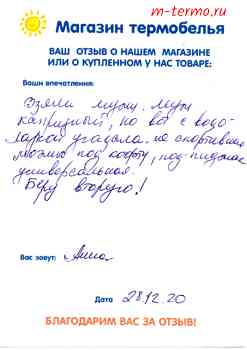 m-termo.ru
Магазин термобелья
ВАШ ОТЗЫВ О НАШЕМ МАГАЗИНЕ
ИЛИ О КУПЛЕННОМ У НАС ТОВАРЕ:
Ваши впечатления:
Взяли мужу. Муж
капризный, но вот с водо-
лазкой угадала. не спортивная
можно под кофту, под пиджак
универсальная.
Беру вторую!
Вас зовут: Анна
Дата 28.12.20
БЛАГОДАРИМ ВАС ЗА ОТЗЫВ!